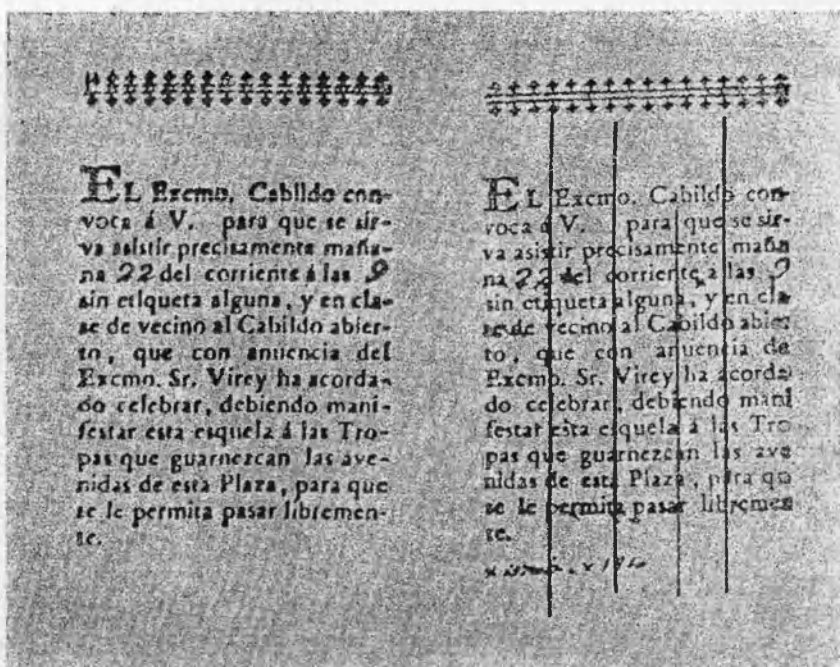 EL Excmo. Cabildo con-
voca á V. para que se sir-
va asistir precisamente maña-
na 22 del corriente á las 9
sin etiqueta alguna, y en cla-
se de vecino al Cabildo abier-
to, que con anuencia del
Excmo. Sr. Virey ha acorda-
do celebrar, debiendo mani-
festar esta esquela á las Tro-
pas que guarnezcan las ave-
nidas de esta Plaza, para que
se le permita pasar libremen-
te.
EL Excmo. Cabildo con-
voca á V. para que se sir-
va asistir precisamente maña
na 22 del corriente á las 9
sin etiqueta alguna, y en cla-
se de vecino al Cabildo abier
to, que con anuencia de
Excmo. Sr. Virey ha acorda-
do celebrar, debiendo mani
festar esta esquela á las Tro-
pas que guarnezcan las ave
nidas de esta Plaza, para qu
se le permita pasar libremen
te.